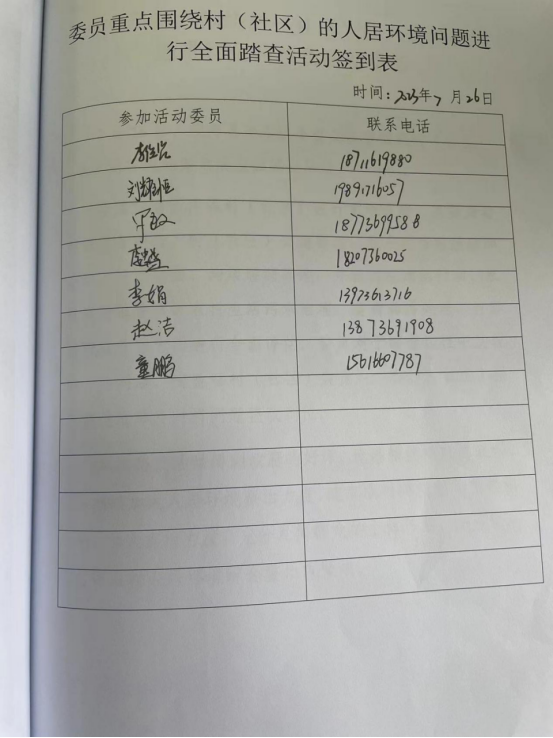 委员重点围绕村（社区）的人居环境问题进
行全面踏查活动签到表
时间：2023年7月26日
参加活动委员 联系电话
18711619880
刘 19891716057
18773699588
18207360025
李娟 13973613716
赵洁 13873691908
童鹏 15616607787